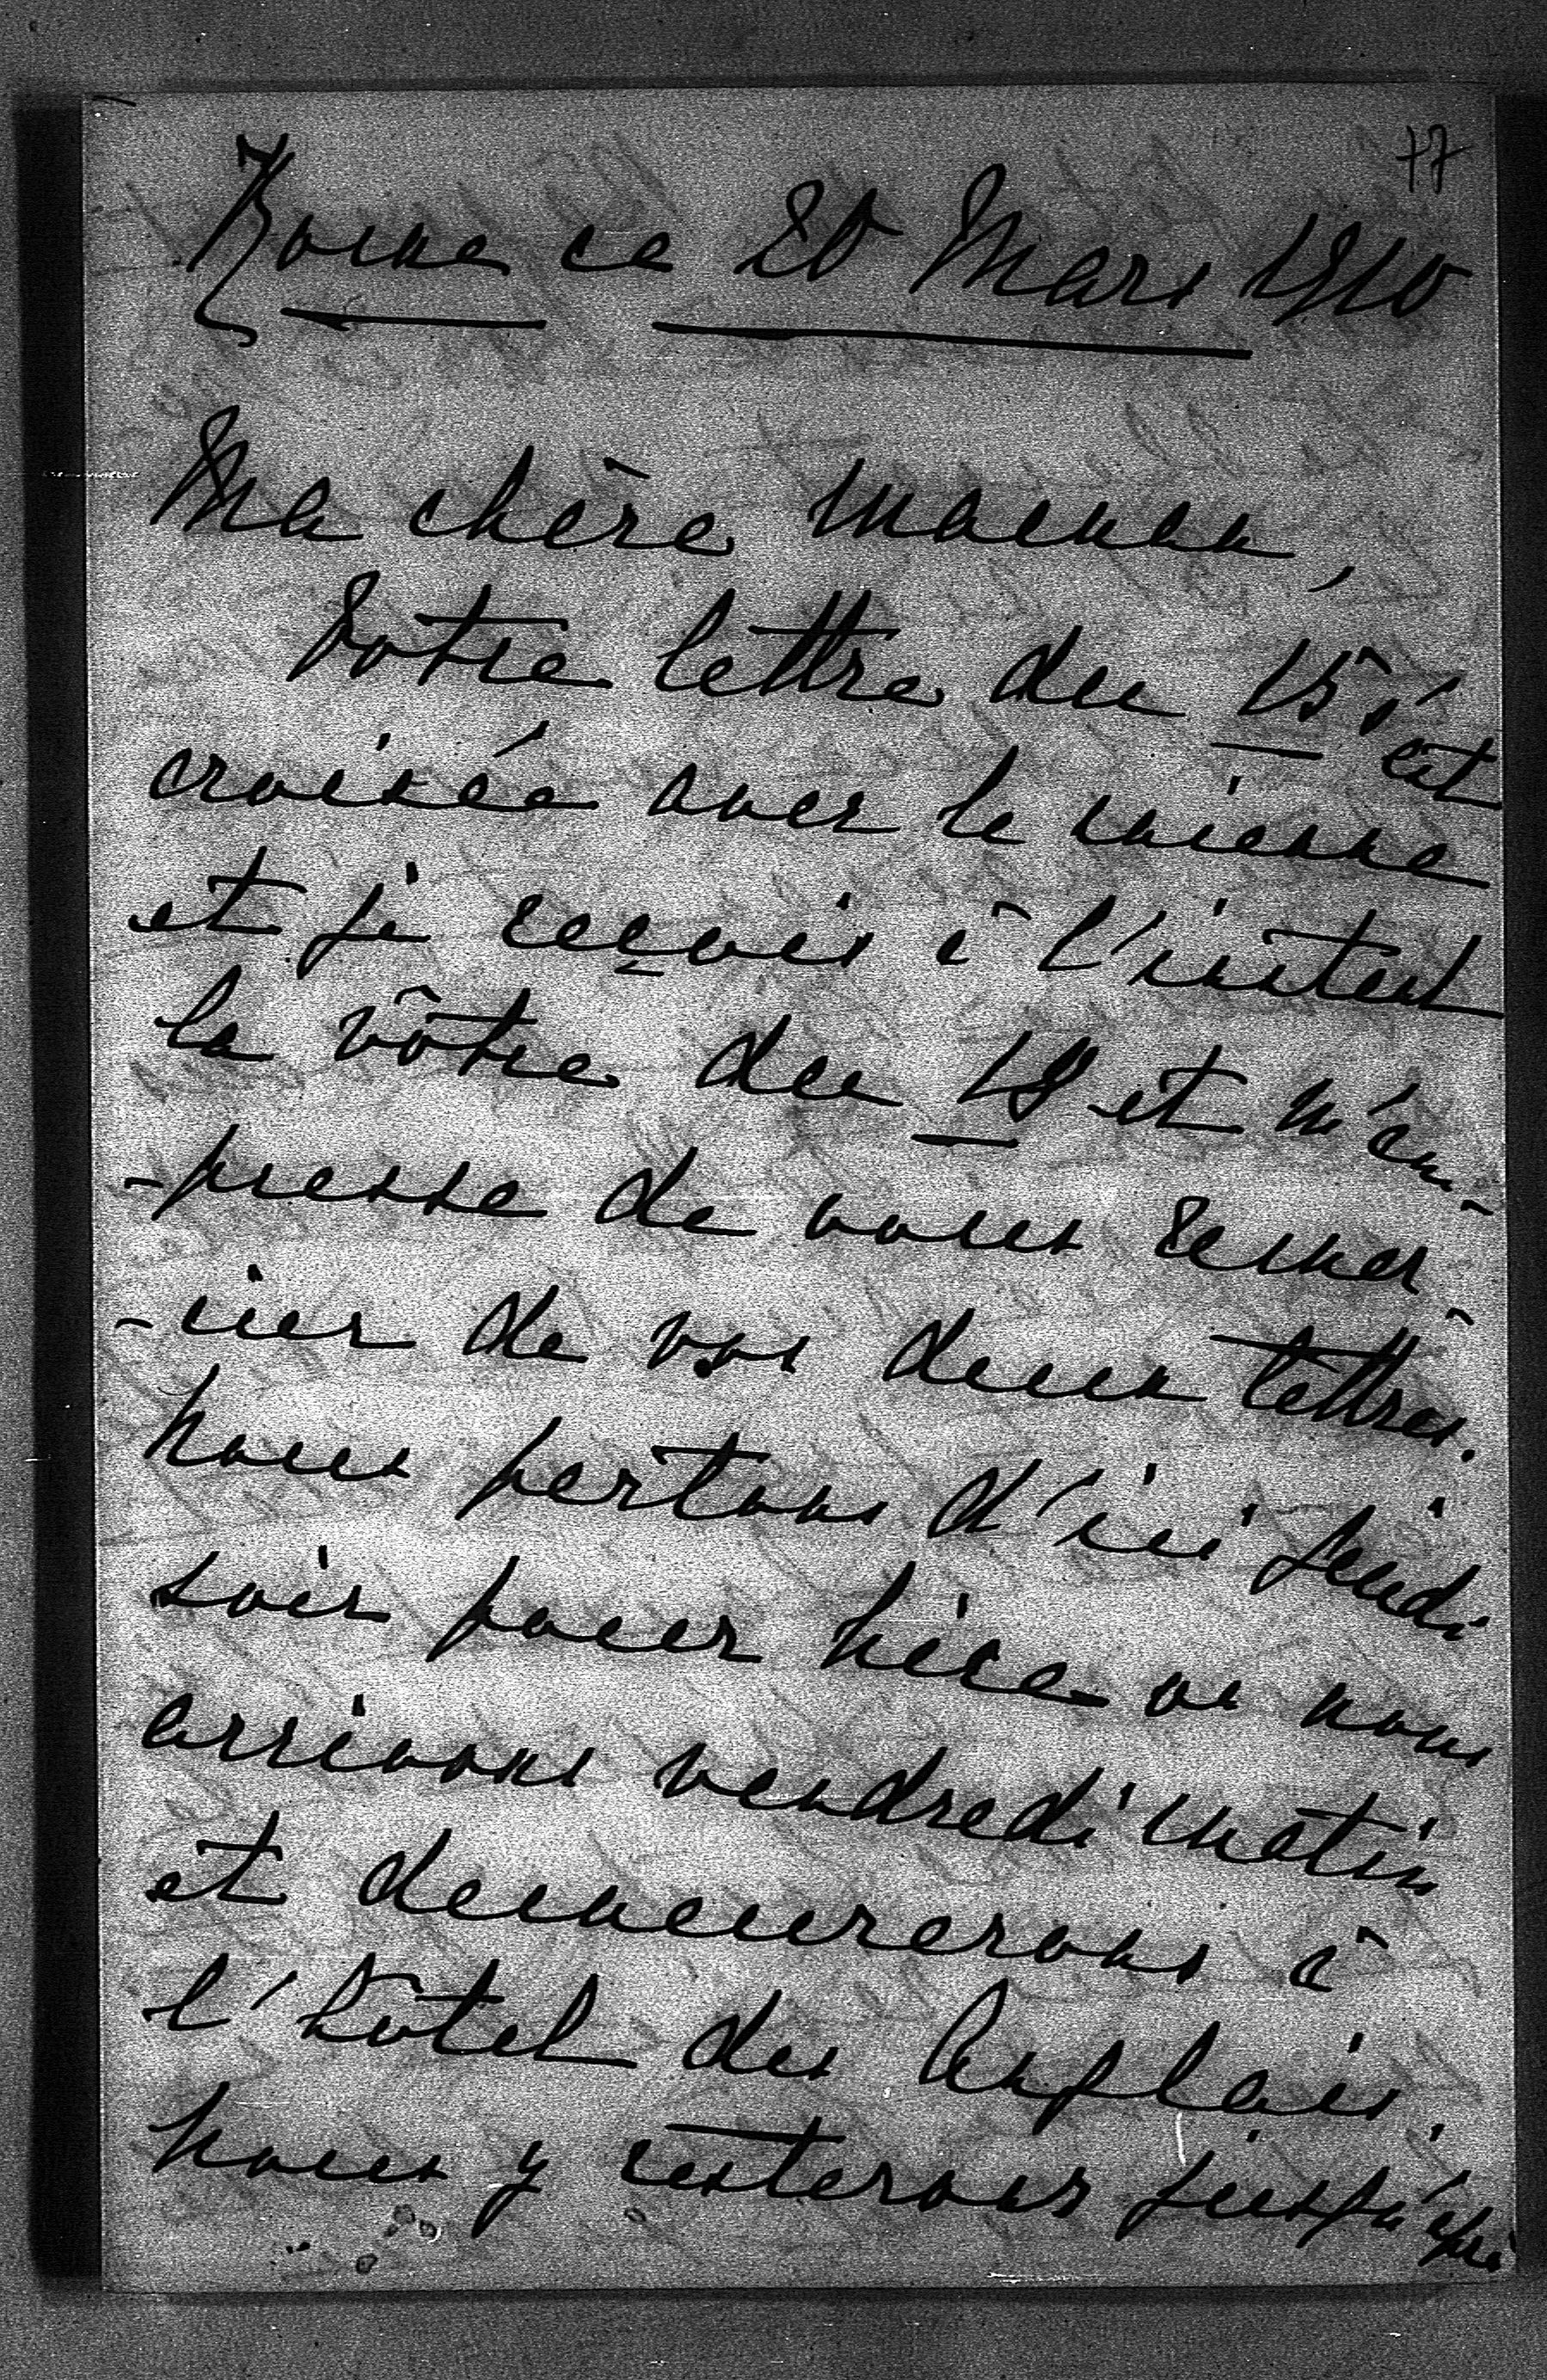 77
Rome ce 20 Mars 1910
Ma chère maman,
Votre lettre du 15 s'est
croisée avec la mienne
et je reçois à l'instant
la vôtre du 18 et m'em-
-presse de vous remer-
-cier de vos deux lettres.
Nous partons d'ici jeudi
soir pour Nice où nous
arrivons vendredi matin
et demeurerons à
l'hôtel des Anglais.
Nous y resterons jusqu'après